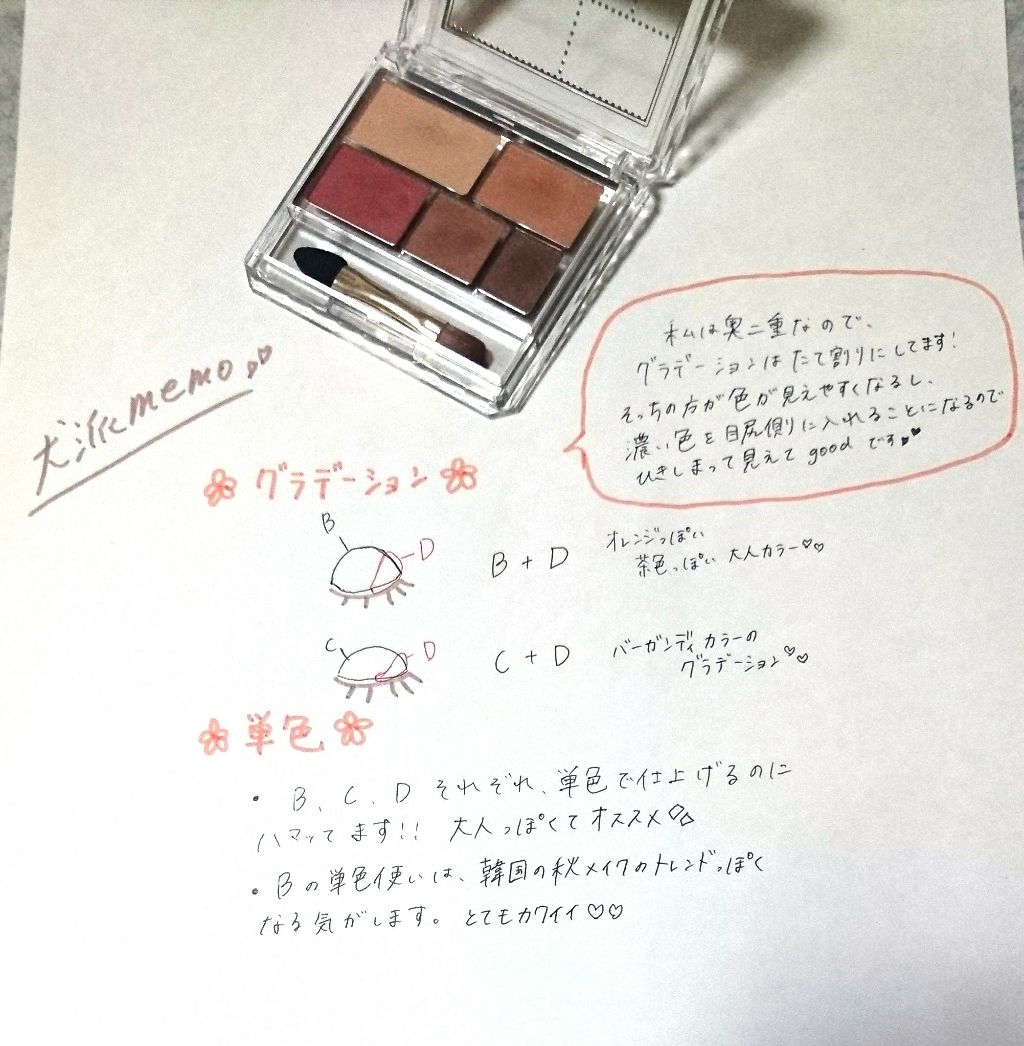 私は奥二重なので、
グラデーションはたて割りにしてます!
そっちの方が色が見えやすくなるし、
濃い色を目尻側に入れることになるので
ひきしまって見えて good です♥♥
memo
グラデーション
B
D
B + D
オレンジっぽい
茶色っぽい 大人カラー♡♡
C
D
C + D
バーガンディカラーの
グラデーション♡♡
単色
・ B、C、D それぞれ、単色で仕上げるのに
ハマッてます!! 大人っぽくてオススメ
・Bの単色使いは、韓国の秋メイクのトレンドっぽく
なる気がします。 とてもカワイイ♡♡